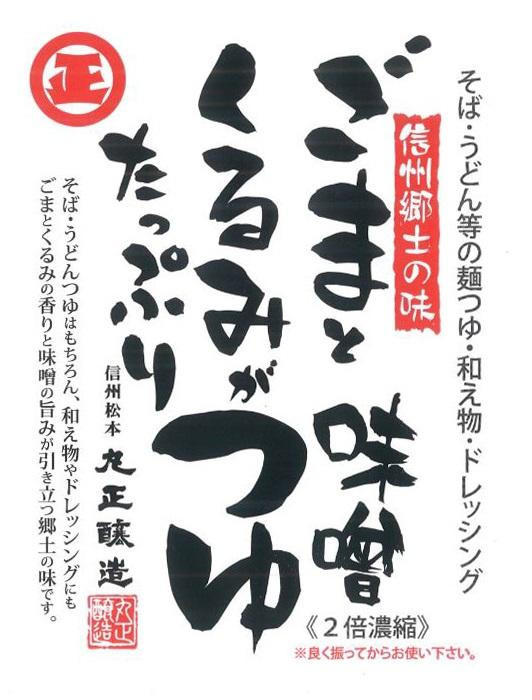 そば・うどん等の麺つゆ・和え物・ドレッシング
信州郷土の味
ごまと
くるみが
たっぷり
味噌
つゆ
《２倍濃縮》
※良く振ってからお使い下さい。
信州松本 丸正醸造
丸正醸造
そば・うどんつゆはもちろん、和え物やドレッシングにも
ごまとくるみの香りと味噌の旨みが引き立つ郷土の味です。
正